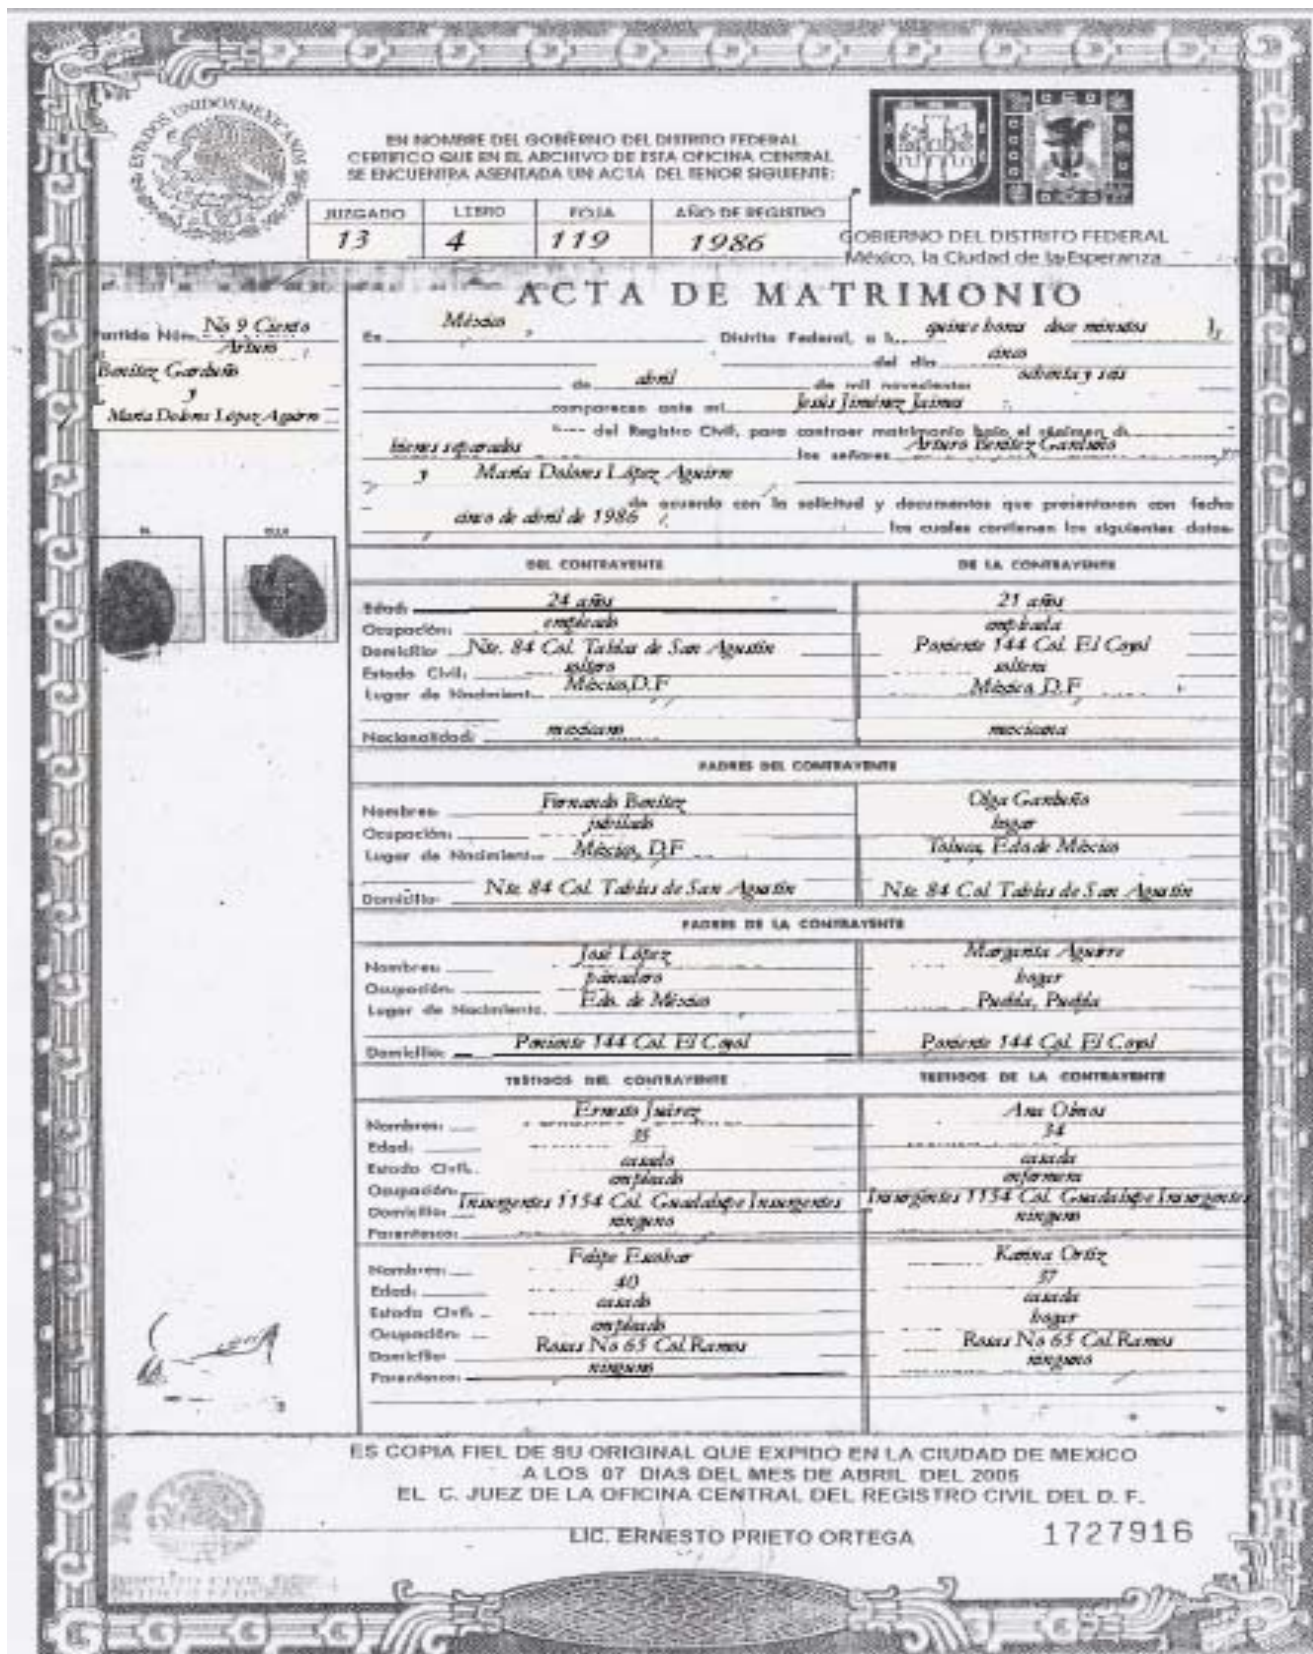 ESTADOS UNIDOS MEXICANOS
EN NOMBRE DEL GOBIERNO DEL DISTRITO FEDERAL
CERTIFICO QUE EN EL ARCHIVO DE ESTA OFICINA CENTRAL
SE ENCUENTRA ASENTADA UN ACTA DEL TENOR SIGUIENTE:
JUZGADO LIBRO FOJA AÑO DE REGISTRO
13 4 119 1986
GOBIERNO DEL DISTRITO FEDERAL
México, la Ciudad de la Esperanza
ACTA DE MATRIMONIO
Partida Núm. No 9 Ciento
Arturo
Benítez Garduño
y
María Dolores López Aguirre
En México, Distrito Federal, a l quince horas doce minutos
del día cinco
de abril de mil novecientos ochenta y seis
comparecen ante mi Jesús Jiménez Jaimes
del Registro Civil, para contraer matrimonio bajo el régimen d
bienes separados los señores Arturo Benítez Garduño
y María Dolores López Aguirre
de acuerdo con la solicitud y documentos que presentaron con fecha
cinco de abril de 1986 los cuales contienen los siguientes datos
EL ELLA
DEL CONTRAYENTE DE LA CONTRAYENTE
Edad: 24 años 21 años
Ocupación: empleado empleada
Domicilio Nte. 84 Col. Tablas de San Agustín Poniente 144 Col. El Coyol
Estado Civil, soltero soltera
Lugar de Nacimient México, D.F México, D.F
Nacionalidad: mexicano mexicana
PADRES DEL CONTRAYENTE
Nombres Fernando Benítez Olga Garduño
Ocupación: jubilado hogar
Lugar de Nacimient México, D.F Toluca, Edo de México
Domicilio Nte. 84 Col. Tablas de San Agustín Nte. 84 Col. Tablas de San Agustín
PADRES DE LA CONTRAYENTE
Nombres: José López Margarita Aguirre
Ocupación: panadero hogar
Lugar de Nacimiento. Edo. de México Puebla, Puebla
Domicilio: Poniente 144 Col. El Coyol Poniente 144 Col. El Coyol
TESTIGOS DEL CONTRAYENTE TESTIGOS DE LA CONTRAYENTE
Nombres: Ernesto Juárez Ana Olmos
Edad: 35 34
Estado Civil. casado casada
Ocupación: empleado enfermera
Domicilio Insurgentes 1154 Col. Guadalupe Insurgentes Insurgentes 1154 Col. Guadalupe Insurgentes
Parentesco: ninguno ninguno
Nombres: Felipe Escobar Karina Ortíz
Edad: 40 37
Estado Civil. casado casada
Ocupación: empleado hogar
Domicilio Rosas No 65 Col. Ramos Rosas No 65 Col. Ramos
Parentesco: ninguno ninguno
ES COPIA FIEL DE SU ORIGINAL QUE EXPIDO EN LA CIUDAD DE MEXICO
A LOS 07 DIAS DEL MES DE ABRIL DEL 2005
EL C. JUEZ DE LA OFICINA CENTRAL DEL REGISTRO CIVIL DEL D. F.
LIC. ERNESTO PRIETO ORTEGA 1727916